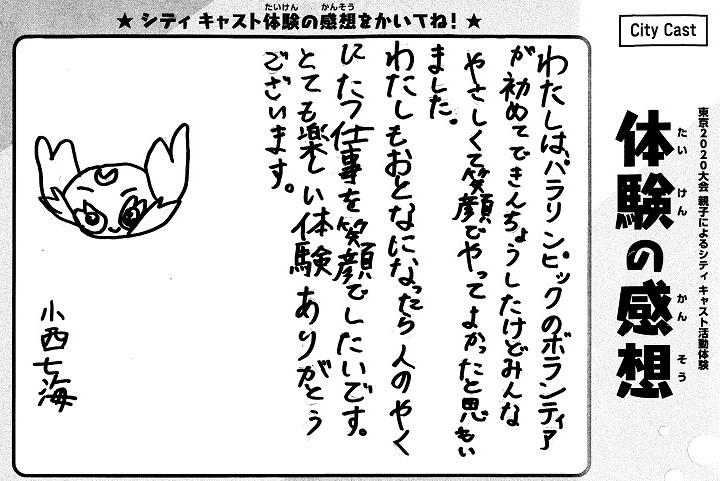 ★ シティ キャスト体験の感想をかいてね！ ★
たいけん かんそう
City Cast
東京2020大会 親子によるシティ キャスト活動体験
体験の感想
たい けん かん そう
わたしは、パラリンピックのボランティア
が初めてできんちょうしたけどみんな
やさしくて笑顔でやってよかったと思い
ました。
わたしもおとなになったら人のやく
にたつ仕事を笑顔でしたいです。
とても楽しい体験ありがとう
ございます。
小西七海